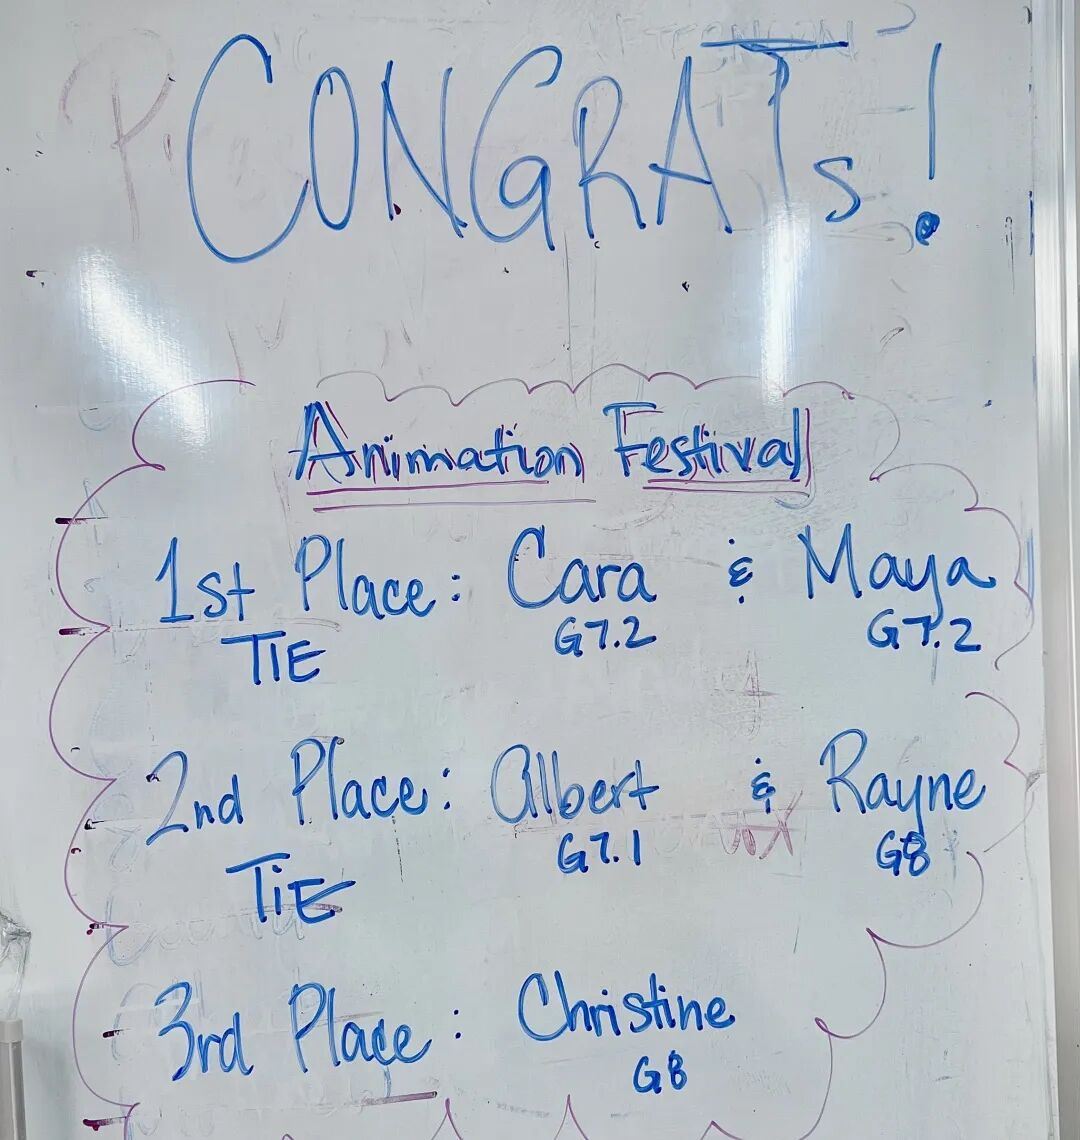 CONGRATs!
Animation Festival
1st Place: Cara & Maya
TIE G7.2 G7.2
2nd Place: Albert & Rayne
G7.1 G8
TiE
3rd Place: Christine
G8